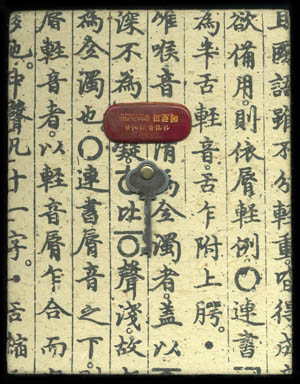 國語雖不分輕重。皆得成
欲備用。則依脣輕例。ㅇ連書
為半舌輕音。舌乍附上腭。
唯喉音 為全濁者。盖以
深不為 凝。ㅎ比ㆆ聲淺。故
為全濁也。ㅇ連書脣音之下。
脣輕音者。以輕音脣乍合而
也。中聲凡十一字。ㆍ舌縮